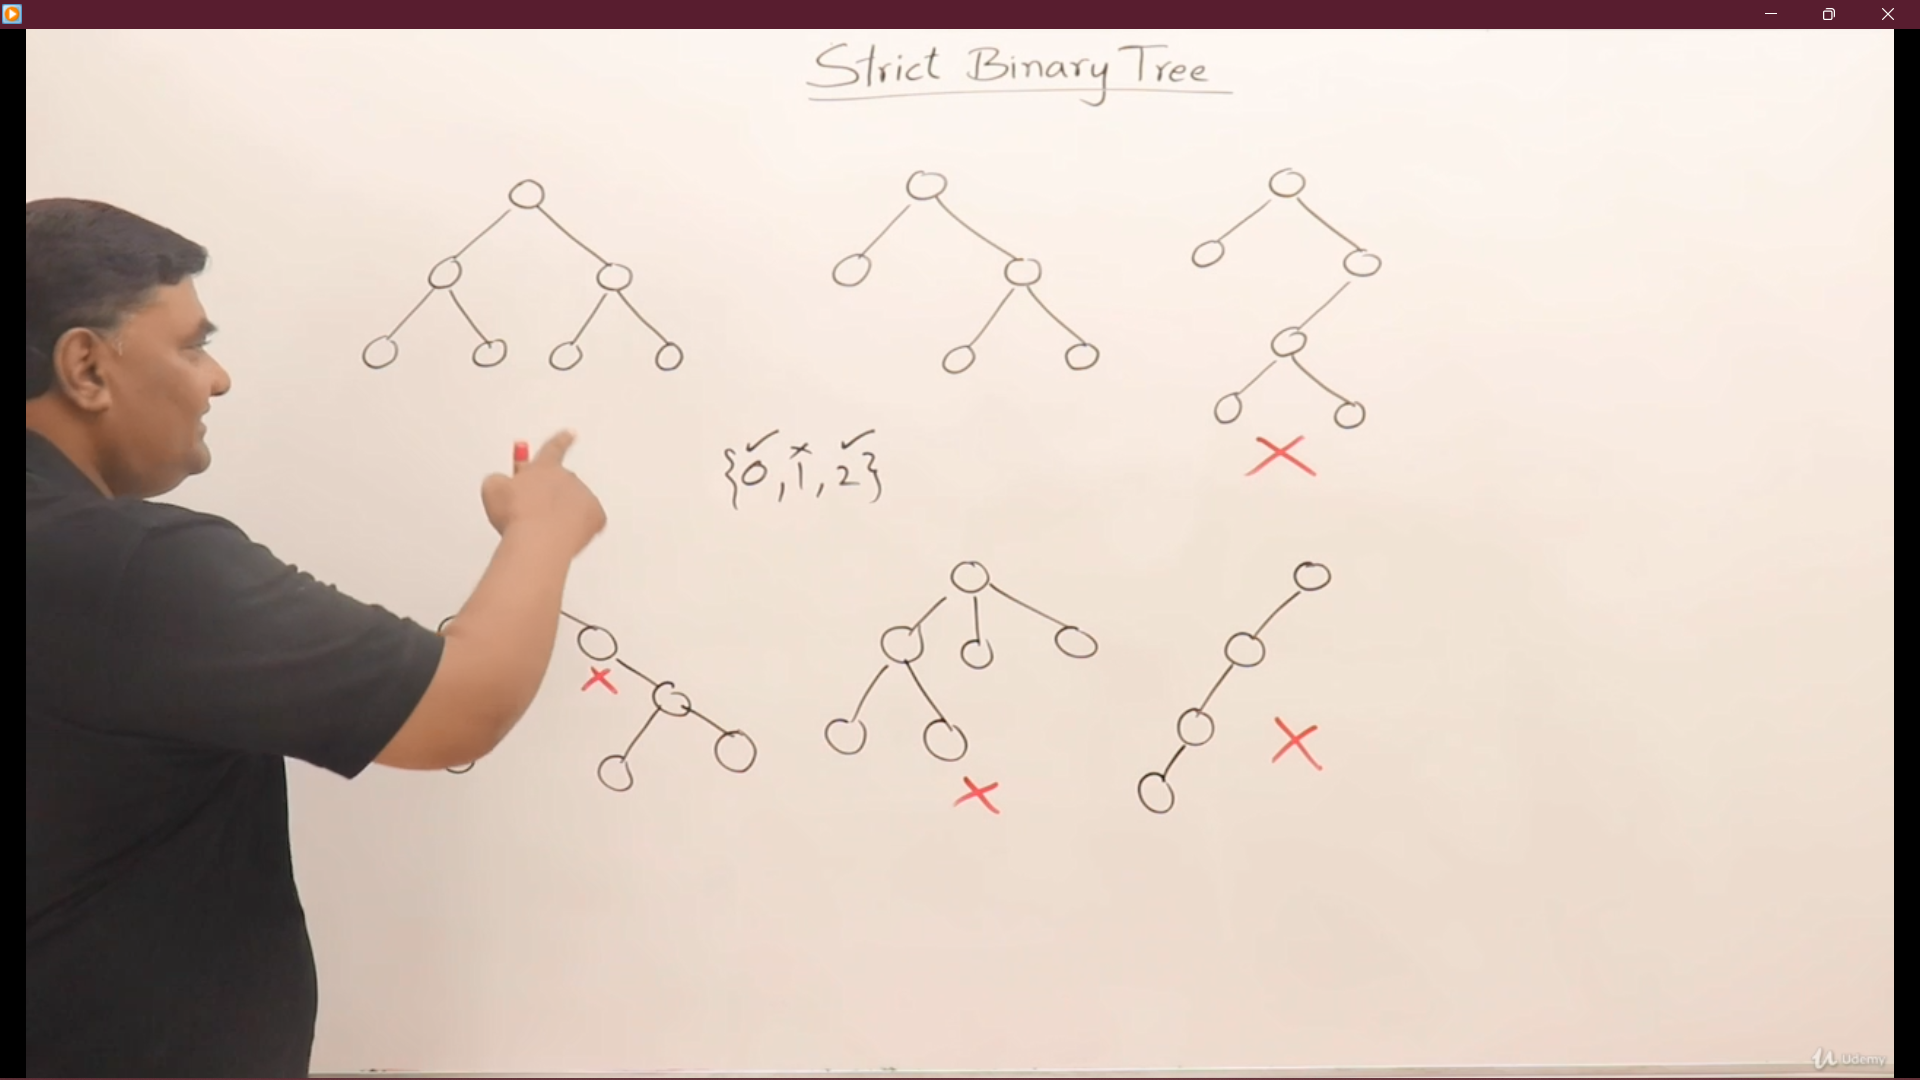 Strict Binary Tree
{0, 1, 2}
Udemy